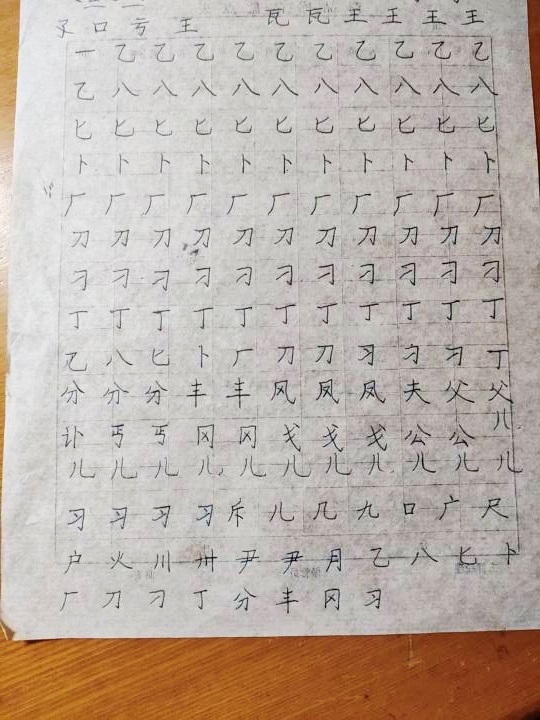 孓 口 亏 王 瓦 瓦 王 王 王 王
一 乙 乙 乙 乙 乙 乙 乙 乙 乙 乙
乙 八 八 八 八 八 八 八 八 八 八
匕 匕 匕 匕 匕 匕 匕 匕 匕 匕 匕
卜 卜 卜 卜 卜 卜 卜 卜 卜 卜 卜
厂 厂 厂 厂 厂 厂 厂 厂 厂 厂 厂
刀 刀 刀 刀 刀 刀 刀 刀 刀 刀 刀
刁 刁 刁 刁 刁 刁 刁 刁 刁 刁 刁
丁 丁 丁 丁 丁 丁 丁 丁 丁 丁 丁
乙 八 匕 卜 厂 刀 刀 习 刁 刁 丁
分 分 分 丰 丰 风 凤 凤 夫 父 父
讣 丐 丐 冈 冈 戈 戈 戈 公 公 儿
儿 儿 儿 儿 儿 儿 儿 儿 儿 儿 儿
习 习 习 习 斥 儿 几 九 口 广 尺
户 火 川 卅 尹 尹 月 乙 八 匕 卜
厂 刀 刁 丁 分 丰 冈 习